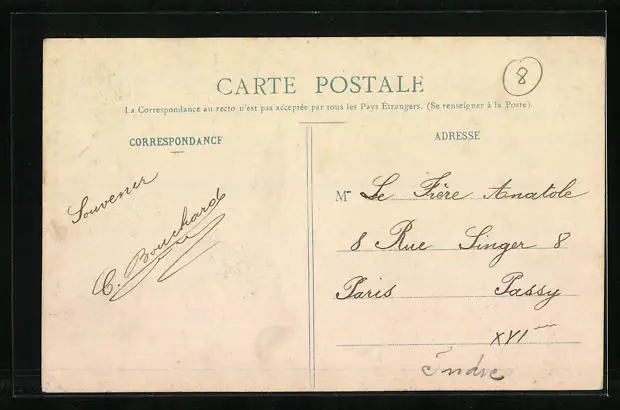 8
CARTE POSTALE
La Correspondance au recto n'est pas acceptée par tous les Pays Étrangers. (Se renseigner à la Poste).
CORRESPONDANCE
Souvenir
C. Bouchard
ADRESSE
M Le Frère Anatole
8 Rue Singer 8
Paris Passy
XVI
Indre